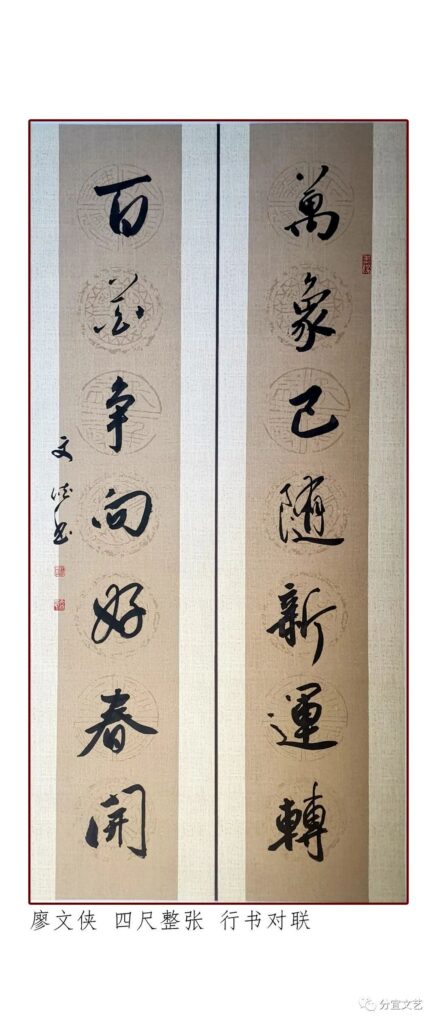 萬象已随新運轉
百花争向好春開
文侠书
廖文侠 四尺整张 行书对联
分宜文艺